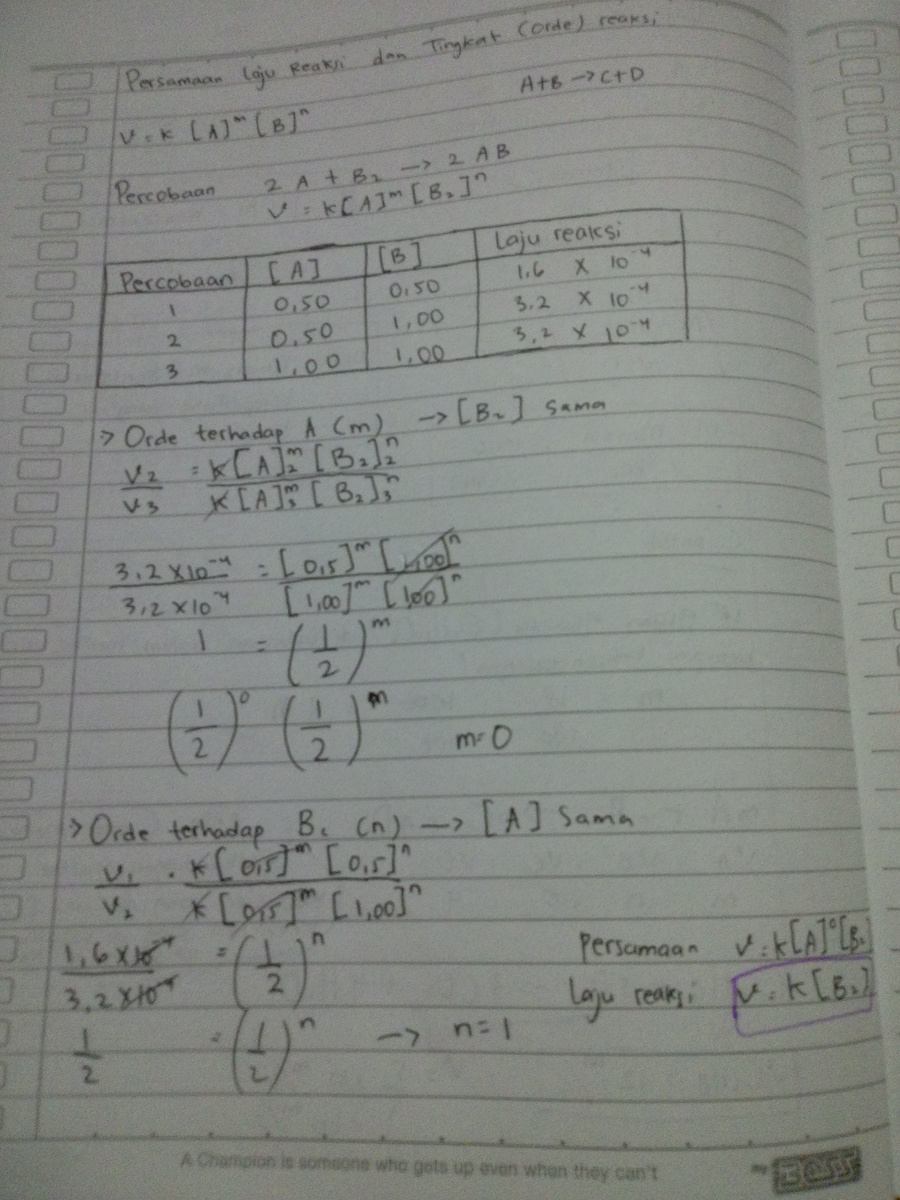 Persamaan Laju Reaksi dan Tingkat (Orde) reaksi
A+B → C+D
V = K [A]^m [B]^n
Percobaan 2 A + B₂ → 2 AB
V = K[A]^m [B₂]^n
Percobaan [A] [B] Laju reaksi
1 0,50 0,50 1,6 X 10^-4
2 0,50 1,00 3.2 X 10^-4
3 1,00 1,00 3,2 X 10^-4
> Orde terhadap A (m) → [B₂] sama
V₂/V₃ = K[A]₂^m [B₂]₂^n / K[A]₃^m [B₂]₃^n
3,2 X 10^-4 / 3,2 X 10^-4 = [0,5]^m [1,00]^n / [1,00]^m [1,00]^n
1 = (1/2)^m
(1/2)^0 (1/2)^m m=0
> Orde terhadap B₂ (n) → [A] Sama
V₁/V₂ = K[0,5]^m [0,5]^n / K[0,5]^m [1,00]^n
1,6 X 10^-4 / 3,2 X 10^-4 = (1/2)^n
1/2 = (1/2)^n → n=1
Persamaan V = K[A]^0 [B₂]
laju reaksi V = K[B₂]
A Champion is someone who gets up even when they can't
my BOSS